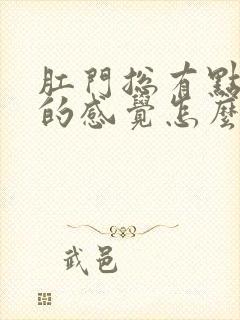 肛門總有點
的感覺怎麼
武邑